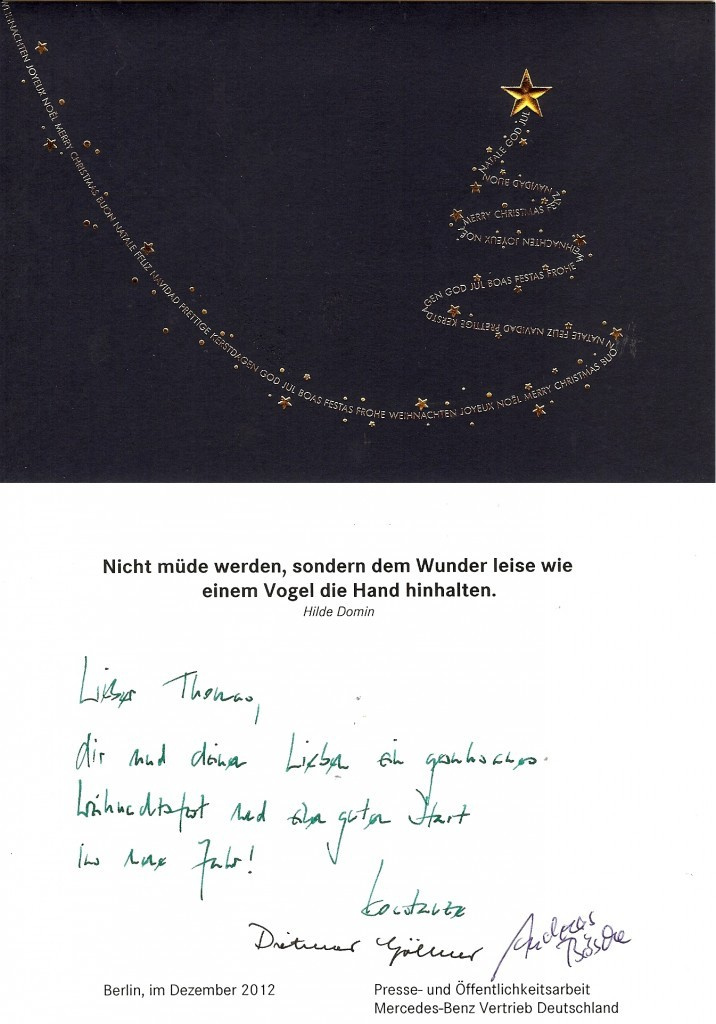 WEIHNACHTEN JOYEUX NOËL MERRY CHRISTMAS BUON NATALE FELIZ NAVIDAD PRETTIGE KERSTDAGEN GOD JUL BOAS FESTAS FROHE WEIHNACHTEN JOYEUX NOËL MERRY CHRISTMAS BUO
N NATALE FELIZ NAVIDAD PRETTIGE KERSTDA
GEN GOD JUL BOAS FESTAS FROHE W
EIHNACHTEN JOYEUX NOË
MERRY CHRISTMAS
BUON NAVIDAD
NATALE GOD JUL
Nicht müde werden, sondern dem Wunder leise wie
einem Vogel die Hand hinhalten.
Hilde Domin
Lieber Thomas,
dir und deinen Lieben ein
Weihnachtsfest und einen guten Start
ins neue Jahr!
Konstanze
Dietmar Göllner Andreas
Berlin, im Dezember 2012
Presse- und Öffentlichkeitsarbeit
Mercedes-Benz Vertrieb Deutschland